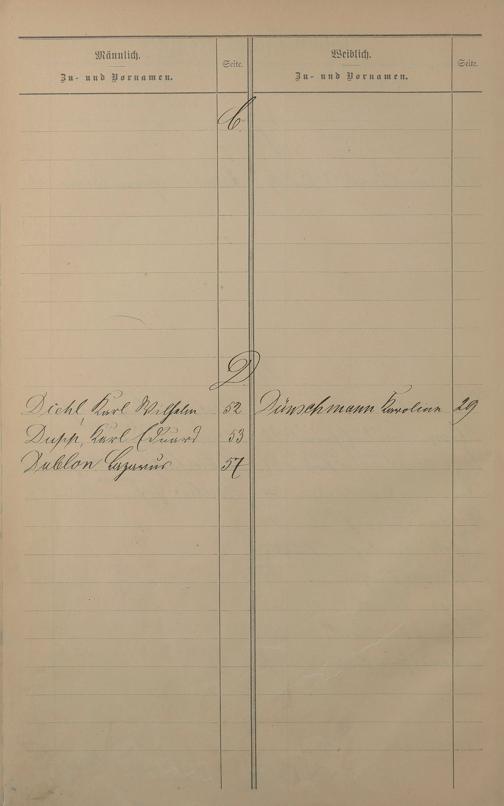 Männlich. Weiblich.
Zu- und Vornamen. Seite. Zu- und Vornamen. Seite.
C.
D
Diehl, Karl Wilhelm 52 Dünschmann Karoline 29
Dupp, Karl Eduard 53
Dablon Lazarus 57